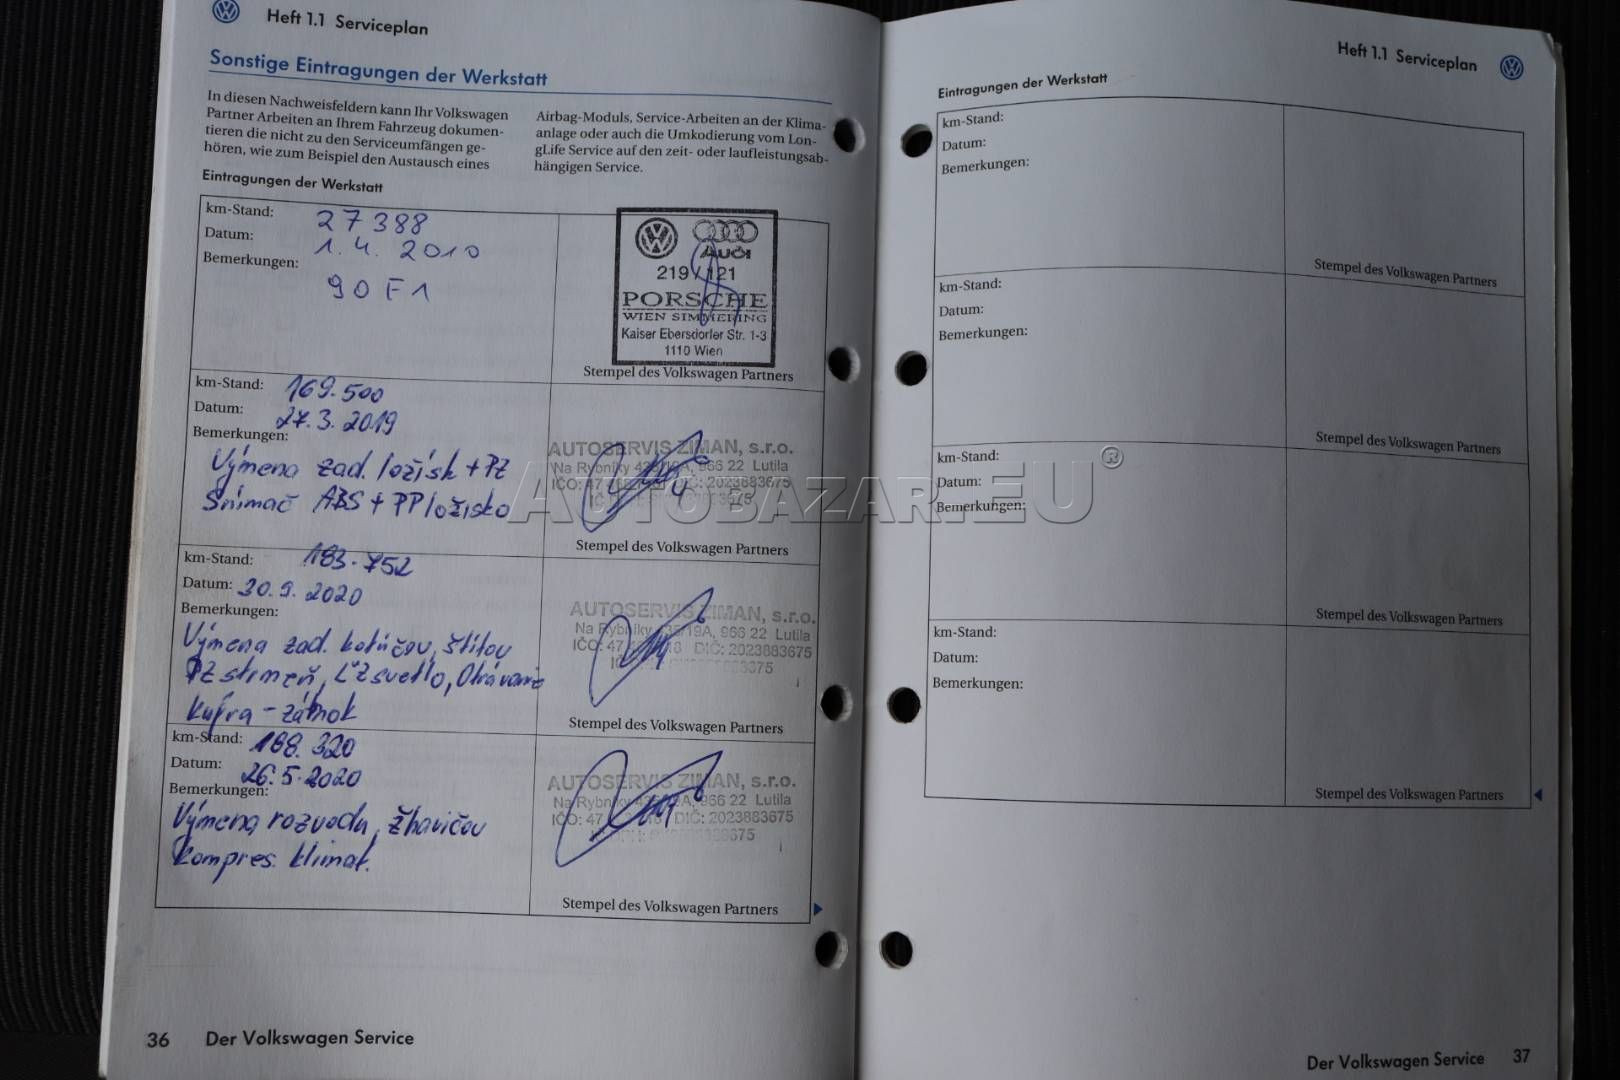 Heft 1.1 Serviceplan
Sonstige Eintragungen der Werkstatt
In diesen Nachweisfeldern kann Ihr Volkswagen
Partner Arbeiten an Ihrem Fahrzeug dokumen-
tieren die nicht zu den Serviceumfängen ge-
hören, wie zum Beispiel den Austausch eines
Airbag-Moduls, Service-Arbeiten an der Klima-
anlage oder auch die Umkodierung vom Lon-
gLife Service auf den zeit- oder laufleistungsab-
hängigen Service.
Eintragungen der Werkstatt
km-Stand: 27388
Datum: 1.4.2010
Bemerkungen:
90 F1
Audi
219/121
PORSCHE
WIEN SIMMERING
Kaiser Ebersdorfer Str. 1-3
1110 Wien
Stempel des Volkswagen Partners
km-Stand: 169.500
Datum: 27.3.2019
Bemerkungen:
Výmena zad. ložísk + PZ
Snímač ABS + PP ložisko
AUTOSERVIS ZIMAN, s.r.o.
Na Rybníky 966 22 Lutila
IČO: 47 DIČ: 2023883675
Stempel des Volkswagen Partners
km-Stand: 183.752
Datum: 30.9.2020
Bemerkungen:
Výmena zad. kotúčov, štítov
PZ strmeň, ĽZ svetlo,
Kufra - zámok
AUTOSERVIS ZIMAN, s.r.o.
Na Rybníky 966 22 Lutila
IČO: 47 DIČ: 2023883675
Stempel des Volkswagen Partners
km-Stand: 188.320
Datum: 26.5.2020
Bemerkungen:
Výmena rozvodu, žhavičov
Kompres. klimat.
AUTOSERVIS ZIMAN, s.r.o.
Na Rybníky 966 22 Lutila
IČO: 47 DIČ: 2023883675
Stempel des Volkswagen Partners
36 Der Volkswagen Service
Heft 1.1 Serviceplan
Eintragungen der Werkstatt
km-Stand:
Datum:
Bemerkungen:
Stempel des Volkswagen Partners
km-Stand:
Datum:
Bemerkungen:
Stempel des Volkswagen Partners
km-Stand:
Datum:
Bemerkungen:
Stempel des Volkswagen Partners
km-Stand:
Datum:
Bemerkungen:
Stempel des Volkswagen Partners
Der Volkswagen Service 37
AUTOBAZAR.EU®